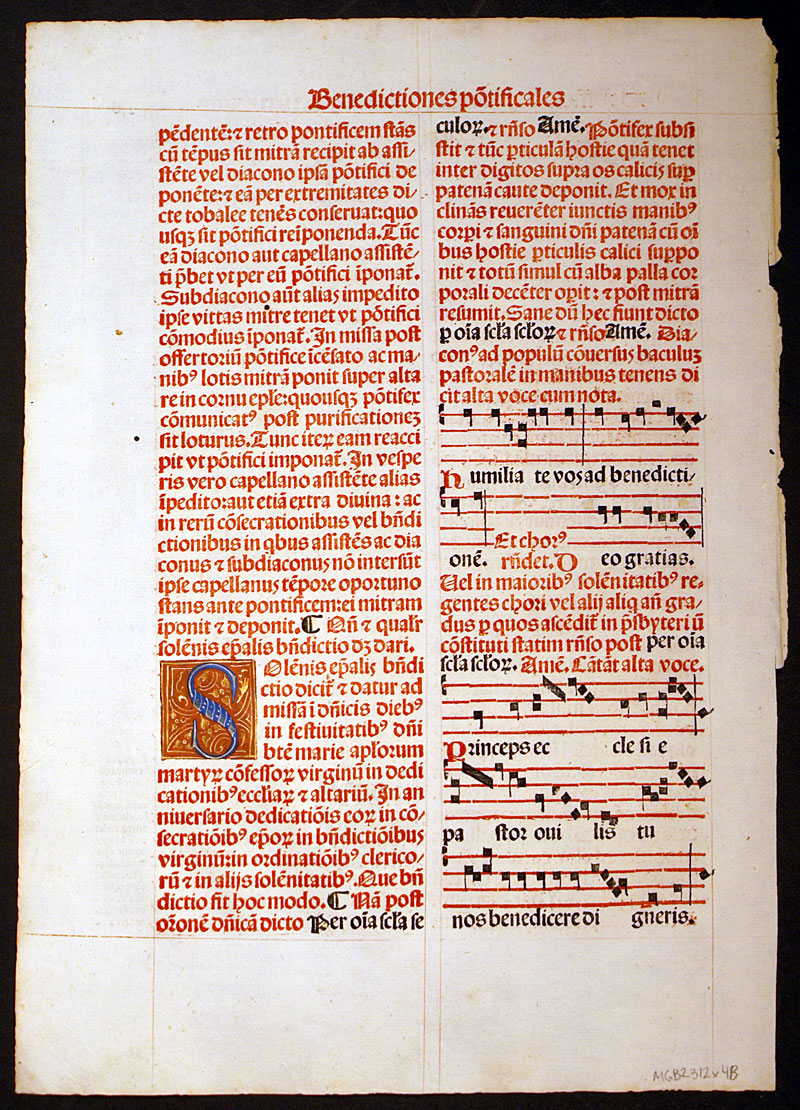 Benedictiones põtificales
pẽdentẽ: ⁊ retro pontificem stãs
cũ tẽpus sit mitrã recipit ab assi-
stẽte vel diacono ipsã põtifici de
ponẽte: ⁊ eã per extremitates di-
cte tobalee tenẽs conseruat: quo
usqʒ sit põtifici reĩponenda. Tũc
eã diacono aut capellano assistẽ-
ti p̃bet vt per eũ põtifici ĩponat̃.
Subdiacono aũt alias impedito
ipse vittas mitre tenet vt põtifici
cõmodius ĩponat̃. In missa post
offertoriũ põtifice ĩcẽsato ac ma-
nibꝰ lotis mitrã ponit super alta
re in cornu eplẽ: quousqʒ põtifex
cõmunicatꝰ post purificationeʒ
sit loturus. Tunc iteꝝ eam reacci
pit vt põtifici imponat̃. In vespe
ris vero capellano assistẽte alias
ĩpedito: aut etiã extra diuina: ac
in rerũ cõsecrationibus vel bñdi
ctionibus in qbus assistẽs ac dia
conus ⁊ subdiaconus nõ intersũt
ipse capellanus tẽpore oportuno
stans ante pontificem: ei mitram
ĩponit ⁊ deponit. ¶ Qñ ⁊ qualr̃
solẽnis ep̃alis bñdictio dʒ dari.
SOlẽnis ep̃alis bñdi
ctio dicit̃ ⁊ datur ad
missã ĩ dñicis diebꝰ
in festiuitatibꝰ dñi
btẽ marie apl̃orum
martyꝝ cõfessoꝝ virginũ in dedi
cationibꝰ eccl̃iaꝝ ⁊ altariũ. In an
niuersario dedicatiõis eoꝝ in cõ-
secratiõibꝰ ep̃oꝝ in bñdictiõibus
virginũ: in ordinatiõibꝰ clerico-
rũ ⁊ in alijs solẽnitatibꝰ. Que bñ
dictio fit hoc modo. ¶ Nã post
orõnẽ dñicã dicto Per oĩa scl̃a se
culoꝝ. ⁊ rñso Amẽ. Põtifex subsi
stit ⁊ tũc ꝑticulã hostie quã tenet
inter digitos supra os calicis suꝑ
patenã caute deponit. Et mox in
clinãs reuerẽter iunctis manibꝰ
corpi ⁊ sanguini dñi patenã cũ oĩ
bus hostie ꝑticulis calici suppo
nit ⁊ totũ simul cũ alba palla cor
porali decẽter oꝑit: ⁊ post mitrã
resumit. Sane dũ hec fiunt dicto
ꝑ oĩa scl̃a scl̃oꝝ ⁊ rñso Amẽ. Dia-
conꝰ ad populũ cõuersus baculuʒ
pastoralẽ in manibus tenens di
cit alta voce cum nota.
Humilia te vos ad benedicti-
Et chorꝰ
onẽ. rñdet. Deo gratias.
Uel in maioribꝰ solẽnitatibꝰ re-
gentes chori vel alij aliq añ gra-
dus ꝑ quos ascẽdit̃ in p̃sbyteriũ
cõstituti statim rñso post per oĩa
scl̃a scl̃oꝝ. Amẽ. Cãtãt alta voce.
Princeps ec cle si e
pa stor oui lis tu
nos benedicere di gneris.
MGB2312x4B